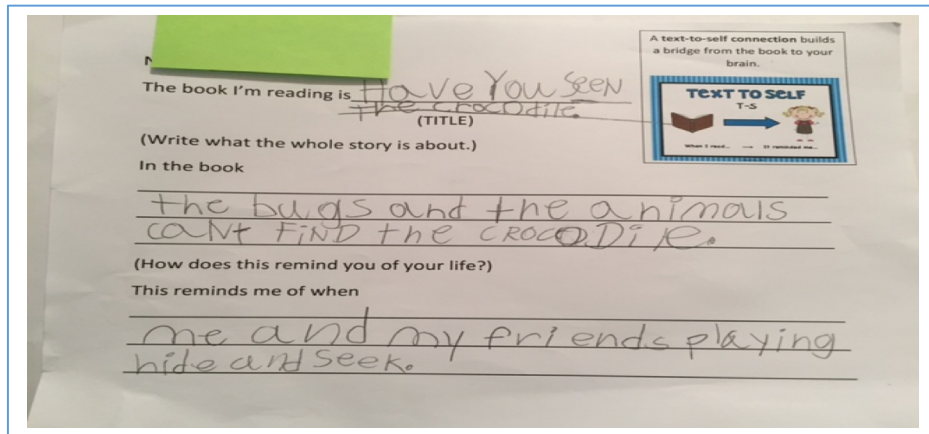 A text-to-self connection builds
a bridge from the book to your
brain.
TEXT TO SELF
T-S
When I read...
It reminded me...
The book I'm reading is Have You SEEN
the crocodile.
(TITLE)
(Write what the whole story is about.)
In the book
the bugs and the animals
caNt FiND the CROCODile.
(How does this remind you of your life?)
This reminds me of when
me and my friends playing
hide and seek.